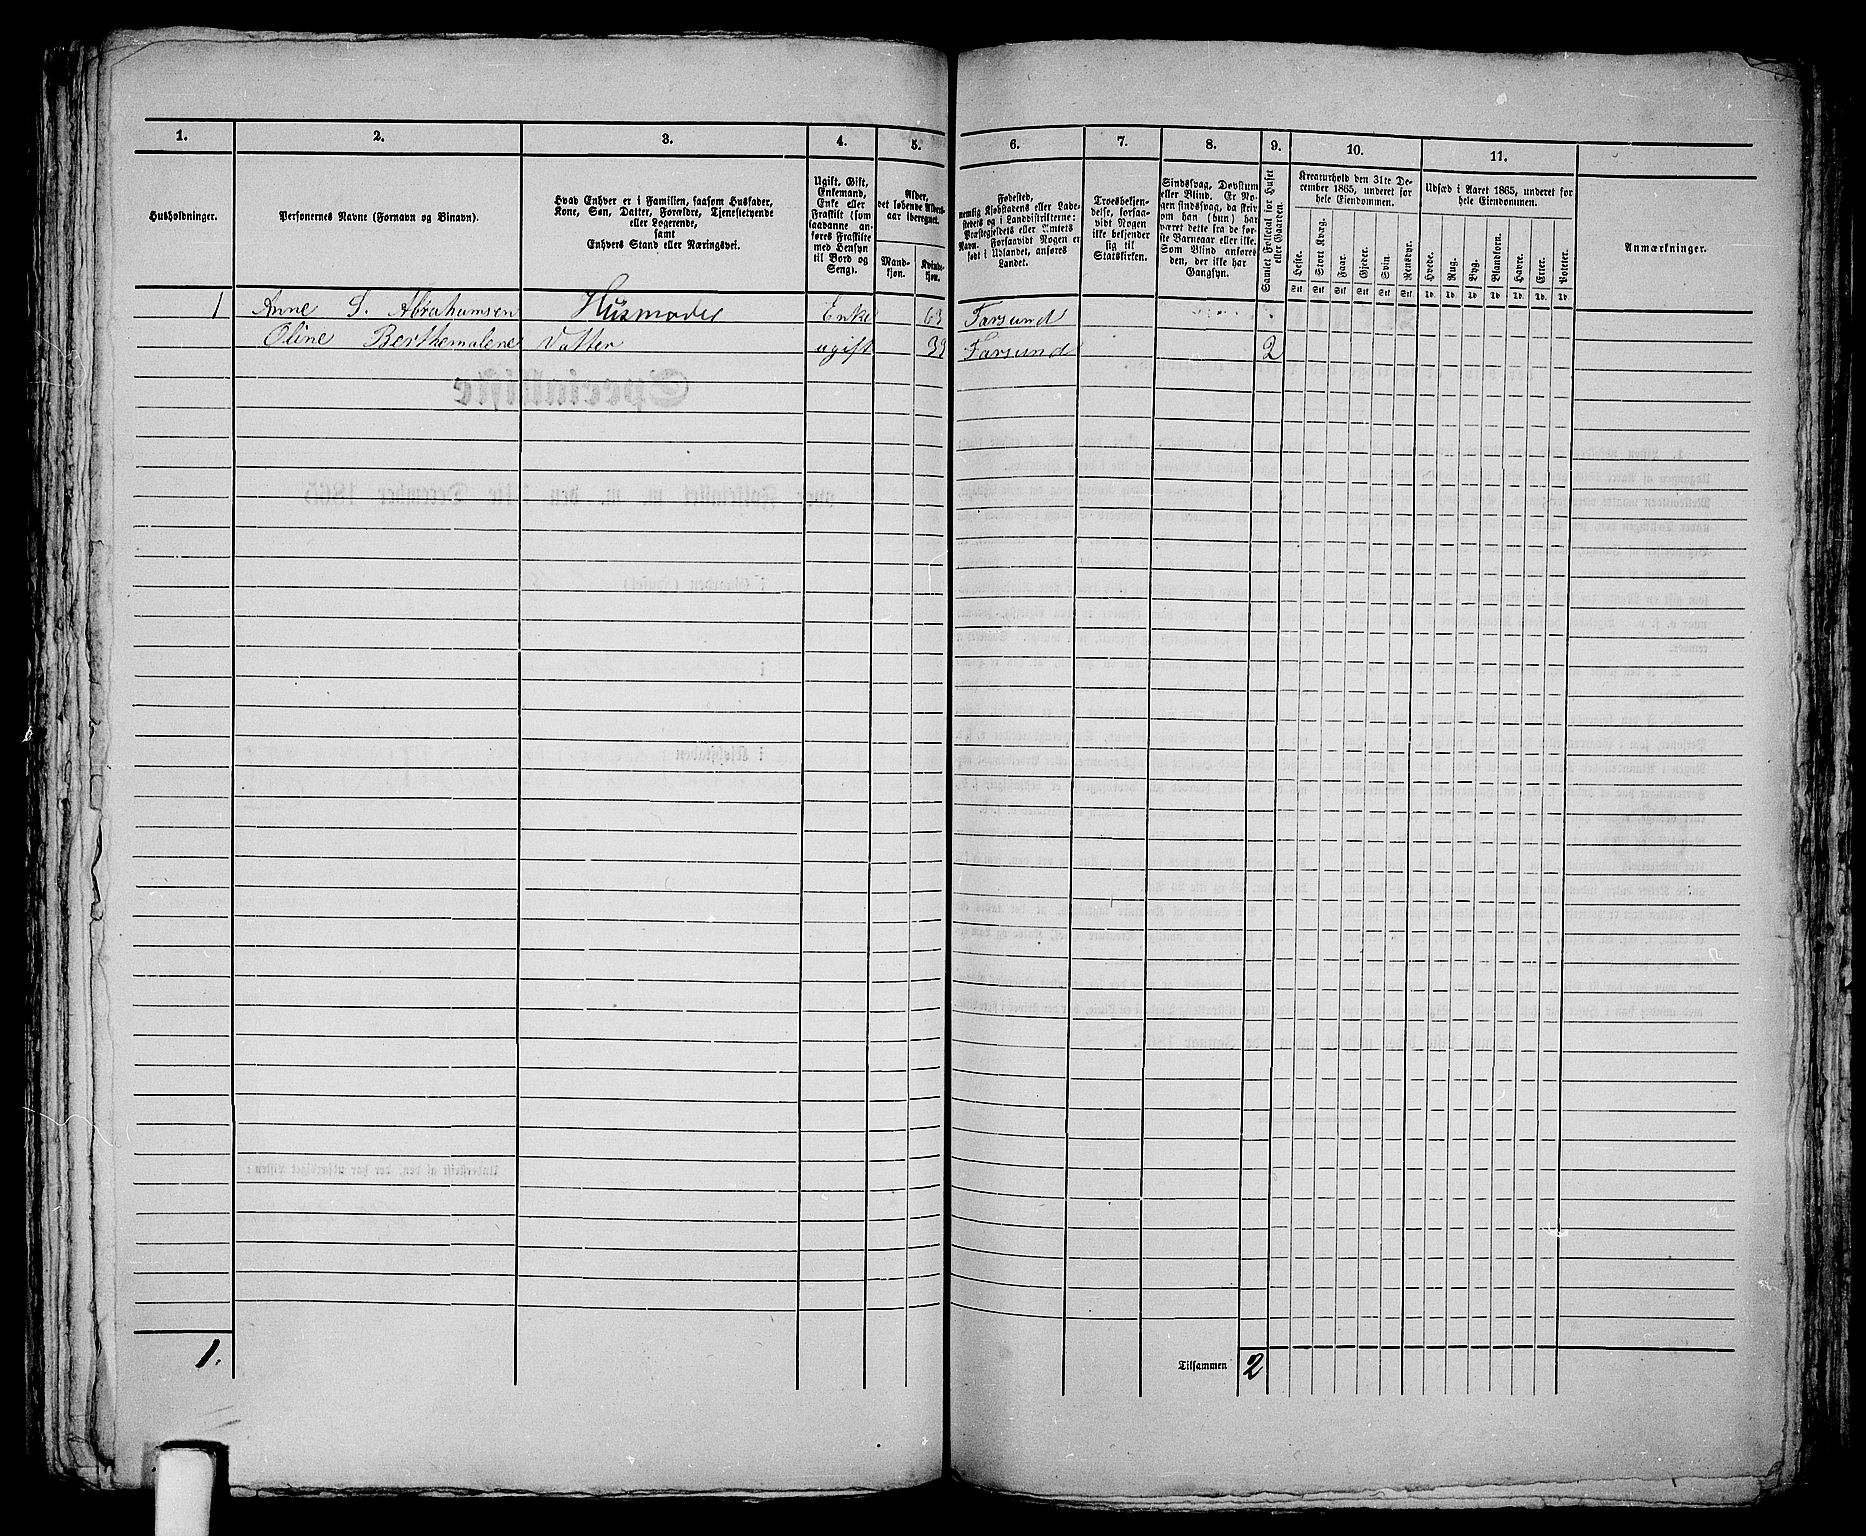 1. 2. 3. 4. 5. 6. 7. 8. 9. 10. 11.
Husholdninger.
Personernes Navne (Fornavn og Binavn).
Hvad Enhver er i Familien, saasom Husfader,
Kone, Søn, Datter, Forældre, Tjenestetyende
eller Logerende,
samt
Enhvers Stand eller Næringsvei.
Ugift, Gift,
Enkemand,
Enke eller
Fraskilt (som
saadanne an-
føres Fraskilte
med Hensyn
til Bord og
Seng).
Alder,
det løbende Alders-
aar iberegnet.
Mand-
kjøn.
Kvinde-
kjøn.
Fødested,
nemlig Kjøbstadens eller Lade-
stedets og i Landdistrikterne:
Præstegjeldets eller Amtets
Navn. Forsaavidt Nogen er
født i Udlandet, anføres
Landet.
Troesbekjen-
delse, forsaa-
vidt Nogen
ikke bekjender
sig til
Statskirken.
Sindssvag, Døvstum
eller Blind. Er No-
gen sindssvag, da skriv
om han (hun) har
været dette fra de før-
ste Barneaar eller ikke.
Som Blind anføres
den, der ikke har
Gangsyn.
Samlet Folketal for Huset
eller Gaarden.
Kreaturhold den 31te De-
cember 1865, underet for
hele Eiendommen.
Heste. Stort Kvæg. Faar. Gjeder. Svin. Rensdyr.
Stk Stk Stk Stk Stk Stk
Udsæd i Aaret 1865, underet for
hele Eiendommen.
Hvede. Rug. Byg. Blandkorn. Havre. Erter. Poteter.
Td. Td. Td. Td. Td. Td. Td.
Anmærkninger.
1 Anne S. Abrahamsen Husmoder Enke 63 Farsund
Oline Berthemalene Datter ugift 39 Farsund 2
1. Tilsammen 2